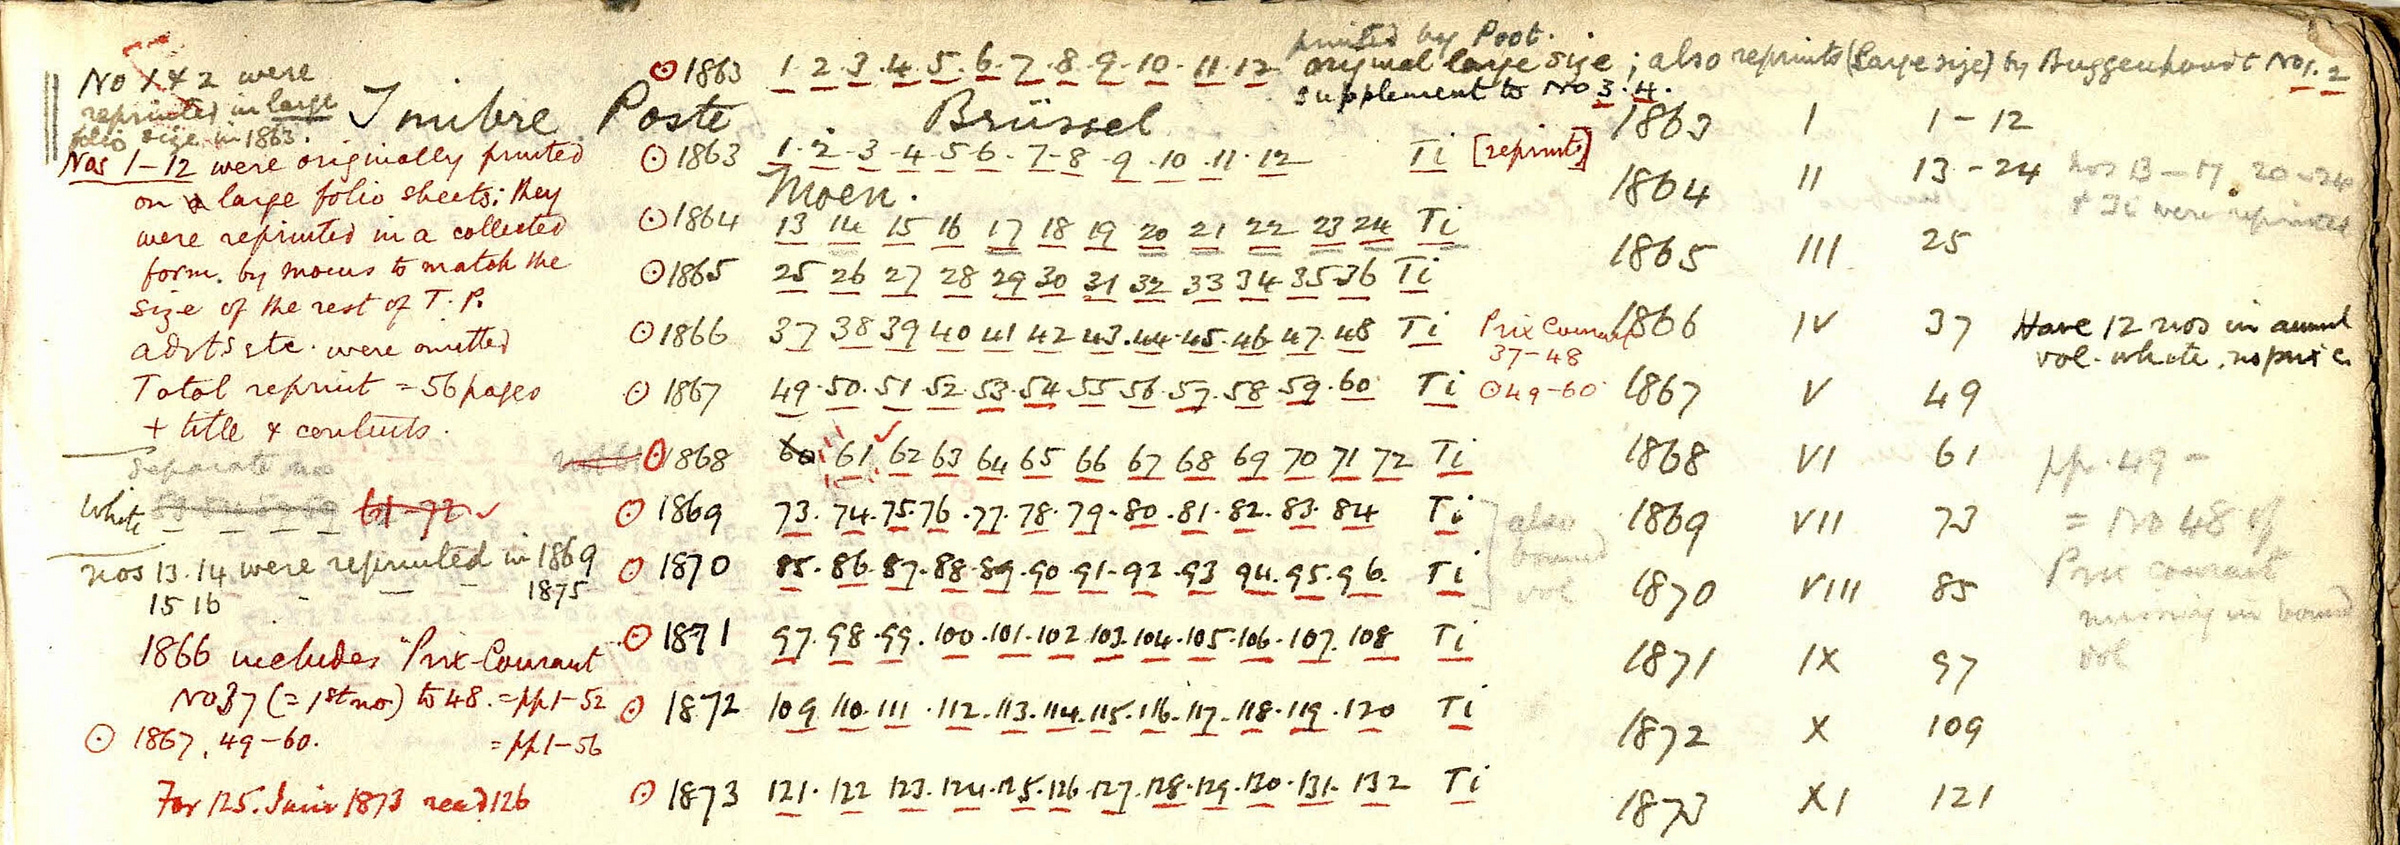 No 1 & 2 were
reprinted in large
folio size in 1863.
Nos 1-12 were originally printed
on large folio sheets; they
were reprinted in a collected
form. by moens to match the
size of the rest of T. P.
advts etc. were omitted
Total reprint = 56 pages
+ title & contents.
Separate no
White 61-72 ✓
nos 13.14 were reprinted in 1869
15 16 - - - 1875
1866 includes "Prix-Courant
No 37 (= 1st no) to 48. = pp 1-52
⊙ 1867, 49-60. = pp 1-56
For 125. Juin 1873 read 126
printed by Poot.
⊙ 1863 1 · 2 · 3 · 4 · 5 · 6 · 7 · 8 · 9 · 10 · 11 · 12 original large size; also reprints (large size) by Buggenhoudt No 1. 2
supplement to No 3. 4.
Timbre Poste Brüssel
⊙ 1863 1 · 2 - 3 - 4 - 5 - 6 - 7 - 8 - 9 - 10 - 11 · 12 Ti [reprint]
Moen.
⊙ 1864 13 14 15 16 17 18 19 20 21 22 23 24 Ti
⊙ 1865 25 26 27 28 29 30 31 32 33 34 35 36 Ti
⊙ 1866 37 38 39 40 41 42 43 · 44 · 45 · 46 · 47 · 48 Ti Prix Courant
37-48
⊙ 1867 49 · 50 · 51 52 · 53 · 54 · 55 56 · 57 · 58 59 · 60 Ti ⊙ 49-60
⊙ 1868 60 61 ✓ 62 63 64 65 66 67 68 69 70 71 72 Ti
⊙ 1869 73 · 74 · 75 · 76 · 77 · 78 · 79 · 80 · 81 · 82 · 83 · 84 Ti ] also
⊙ 1870 85 · 86 · 87 · 88 · 89 · 90 · 91 · 92 · 93 94 · 95 · 96 Ti bound
vol
⊙ 1871 97 · 98 · 99 · 100 · 101 · 102 · 103 · 104 · 105 · 106 · 107 · 108 Ti
⊙ 1872 109 110 · 111 · 112 · 113 · 114 · 115 · 116 · 117 · 118 · 119 · 120 Ti
⊙ 1873 121 · 122 123 · 124 · 125 · 126 · 127 · 128 · 129 · 130 · 131 · 132 Ti
1863 I 1-12
1864 II 13-24 nos 13-17, 20-24
+ Ti were reprinted
1865 III 25
1866 IV 37 Have 12 nos in annual
vol. white, no price
1867 V 49
1868 VI 61 pp. 49 -
1869 VII 73 = No 48 of
1870 VIII 85 Prix courant
missing in bound
1871 IX 97 vol
1872 X 109
1873 XI 121